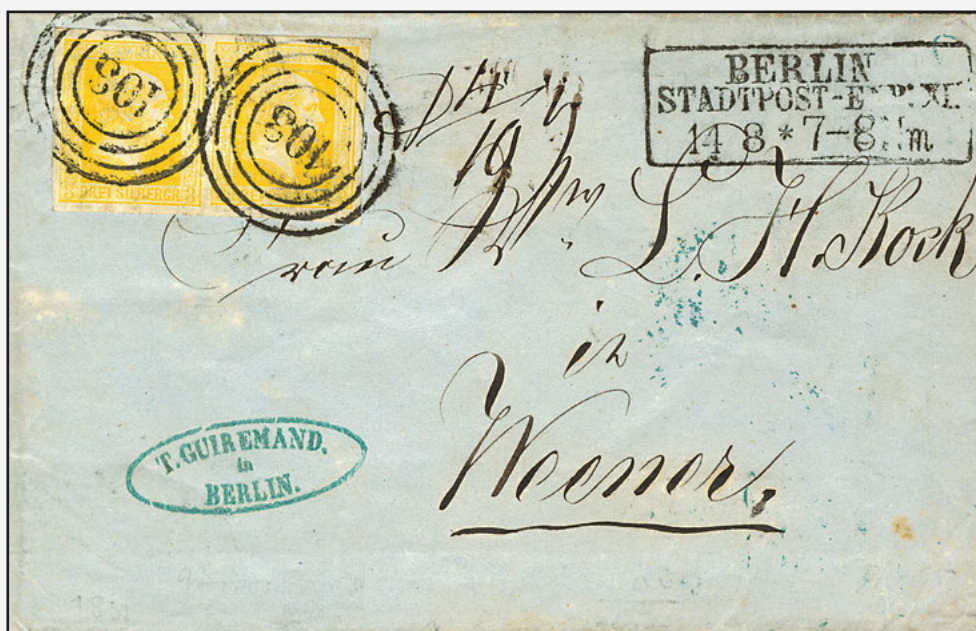 108
108
DREI SILBERGR. 3
BERLIN
STADTPOST-EXP. XI.
14 8 * 7-8 Nm
Frau
L. H. Kock
in
Weener,
T. GUIREMAND.
in
BERLIN.